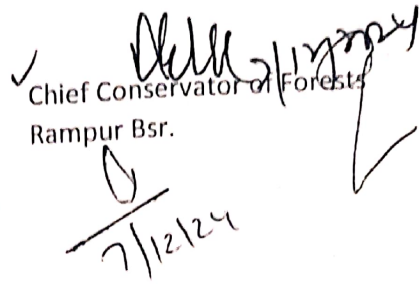 Chief Conservator of Forests
Rampur Bsr.
7/12/24